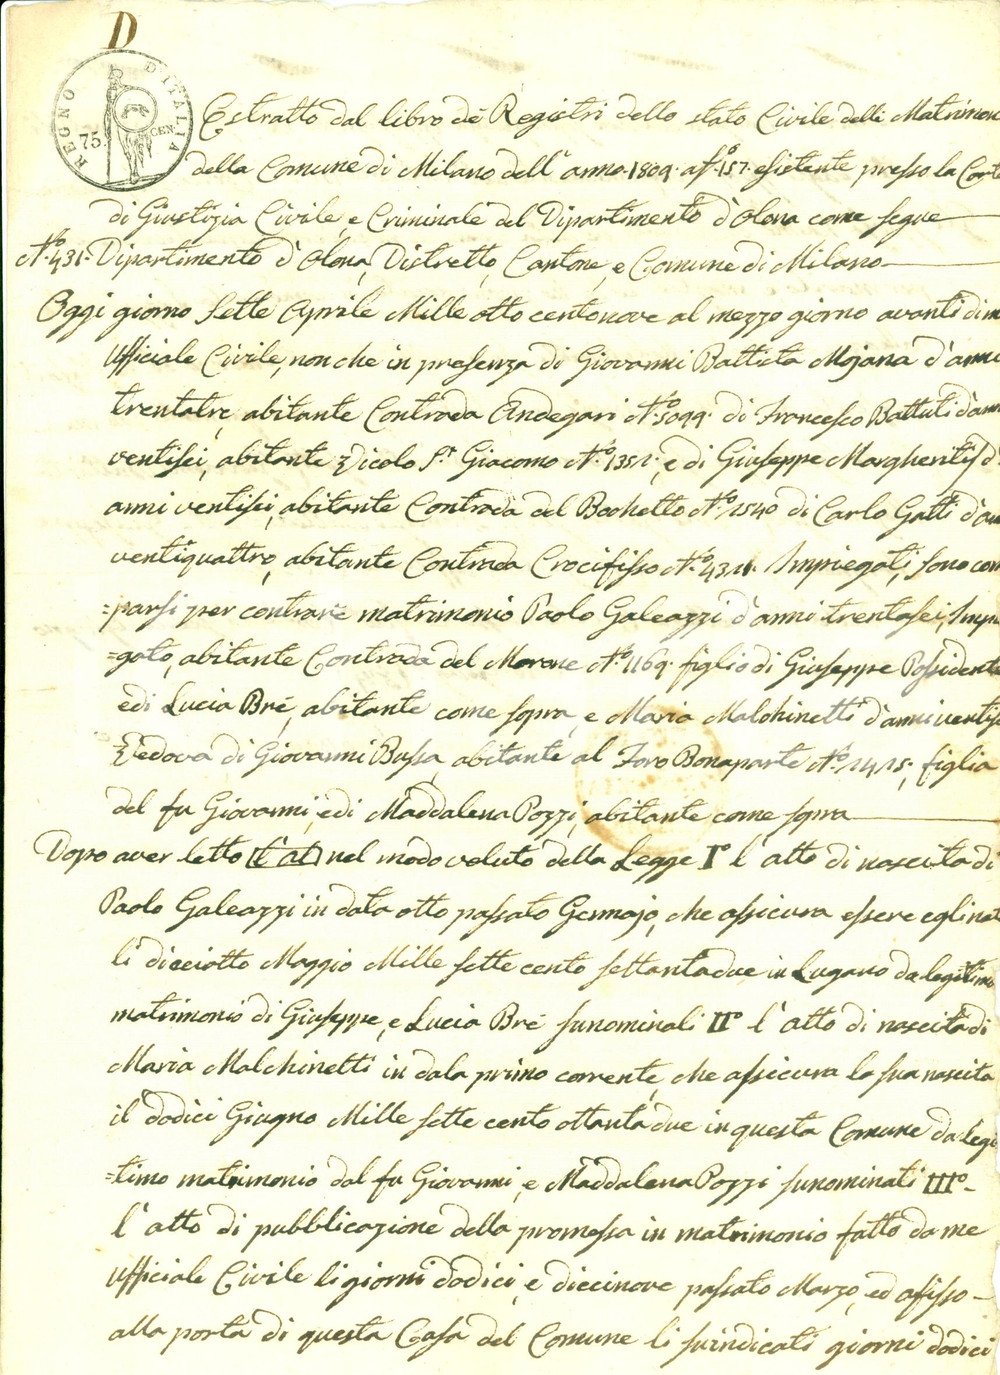 D
REGNO D'ITALIA
75. CEN.
Estratto dal libro dè Registri dello stato Civile delli Matrimon
della Comune di Milano dell' anno 1809. a f.° 157. esistente presso la Corte
di Giustizia Civile, e Criminale del Dipartimento d'Olona come segue
N.° 431. Dipartimento d'Olona, Distretto, Cantone, e Comune di Milano
Oggi giorno sette Aprile Mille otto cento nove al mezzo giorno avanti di me
Ufficiale Civile, non che in presenza di Giovanni Battista Mojana d'anni
trentatre, abitante Contrada Andegari N.° 5099. di Francesco Battuti d'ann
ventisei, abitante Vicolo S.n Giacomo N.° 1351., e di Giuseppe Margheritis d'
anni ventisei, abitante Contrada del Bochetto N.° 2540 di Carlo Gatti d'an
ventiquattro, abitante Contrada Crocifisso N.° 4311. Impiegati, sono com
=parsi per contrare matrimonio Paolo Galeazzi d'anni trentasei, Impie
=gato, abitante Contrada del Morone N.° 1169. figlio di Giuseppe Possidente
e di Lucia Bré, abitante come sopra, e Maria Malchinetti d'anni ventise
Vedova di Giovanni Bussa, abitante al Foro Bonaparte N.° 1415, figlia
del fu Giovanni, e di Maddalena Pozzi, abitante come sopra
Dopo aver letto l'at nel modo voluto della Legge I° l'atto di nascita di
Paolo Galeazzi in data otto passato Gennajo, che assicura essere egli nat
li dicciotto Maggio Mille sette cento settantadue in Lugano da legitimo
matrimonio di Giuseppe, e Lucia Bré sunominati II° l'atto di nascita di
Maria Malchinetti in data primo corrente, che assicura la sua nascita
il dodici Giugno Mille sette cento ottanta due in questa Comune da legi
=timo matrimonio dal fu Giovanni, e Maddalena Pozzi sunominati III°-
l'atto di pubblicazione della promessa in matrimonio fatto da me
Ufficiale Civile li giorni dodici, e diecinove passato Marzo, ed afisso-
alla porta di questa Casa del Comune li suindicati giorni dodici